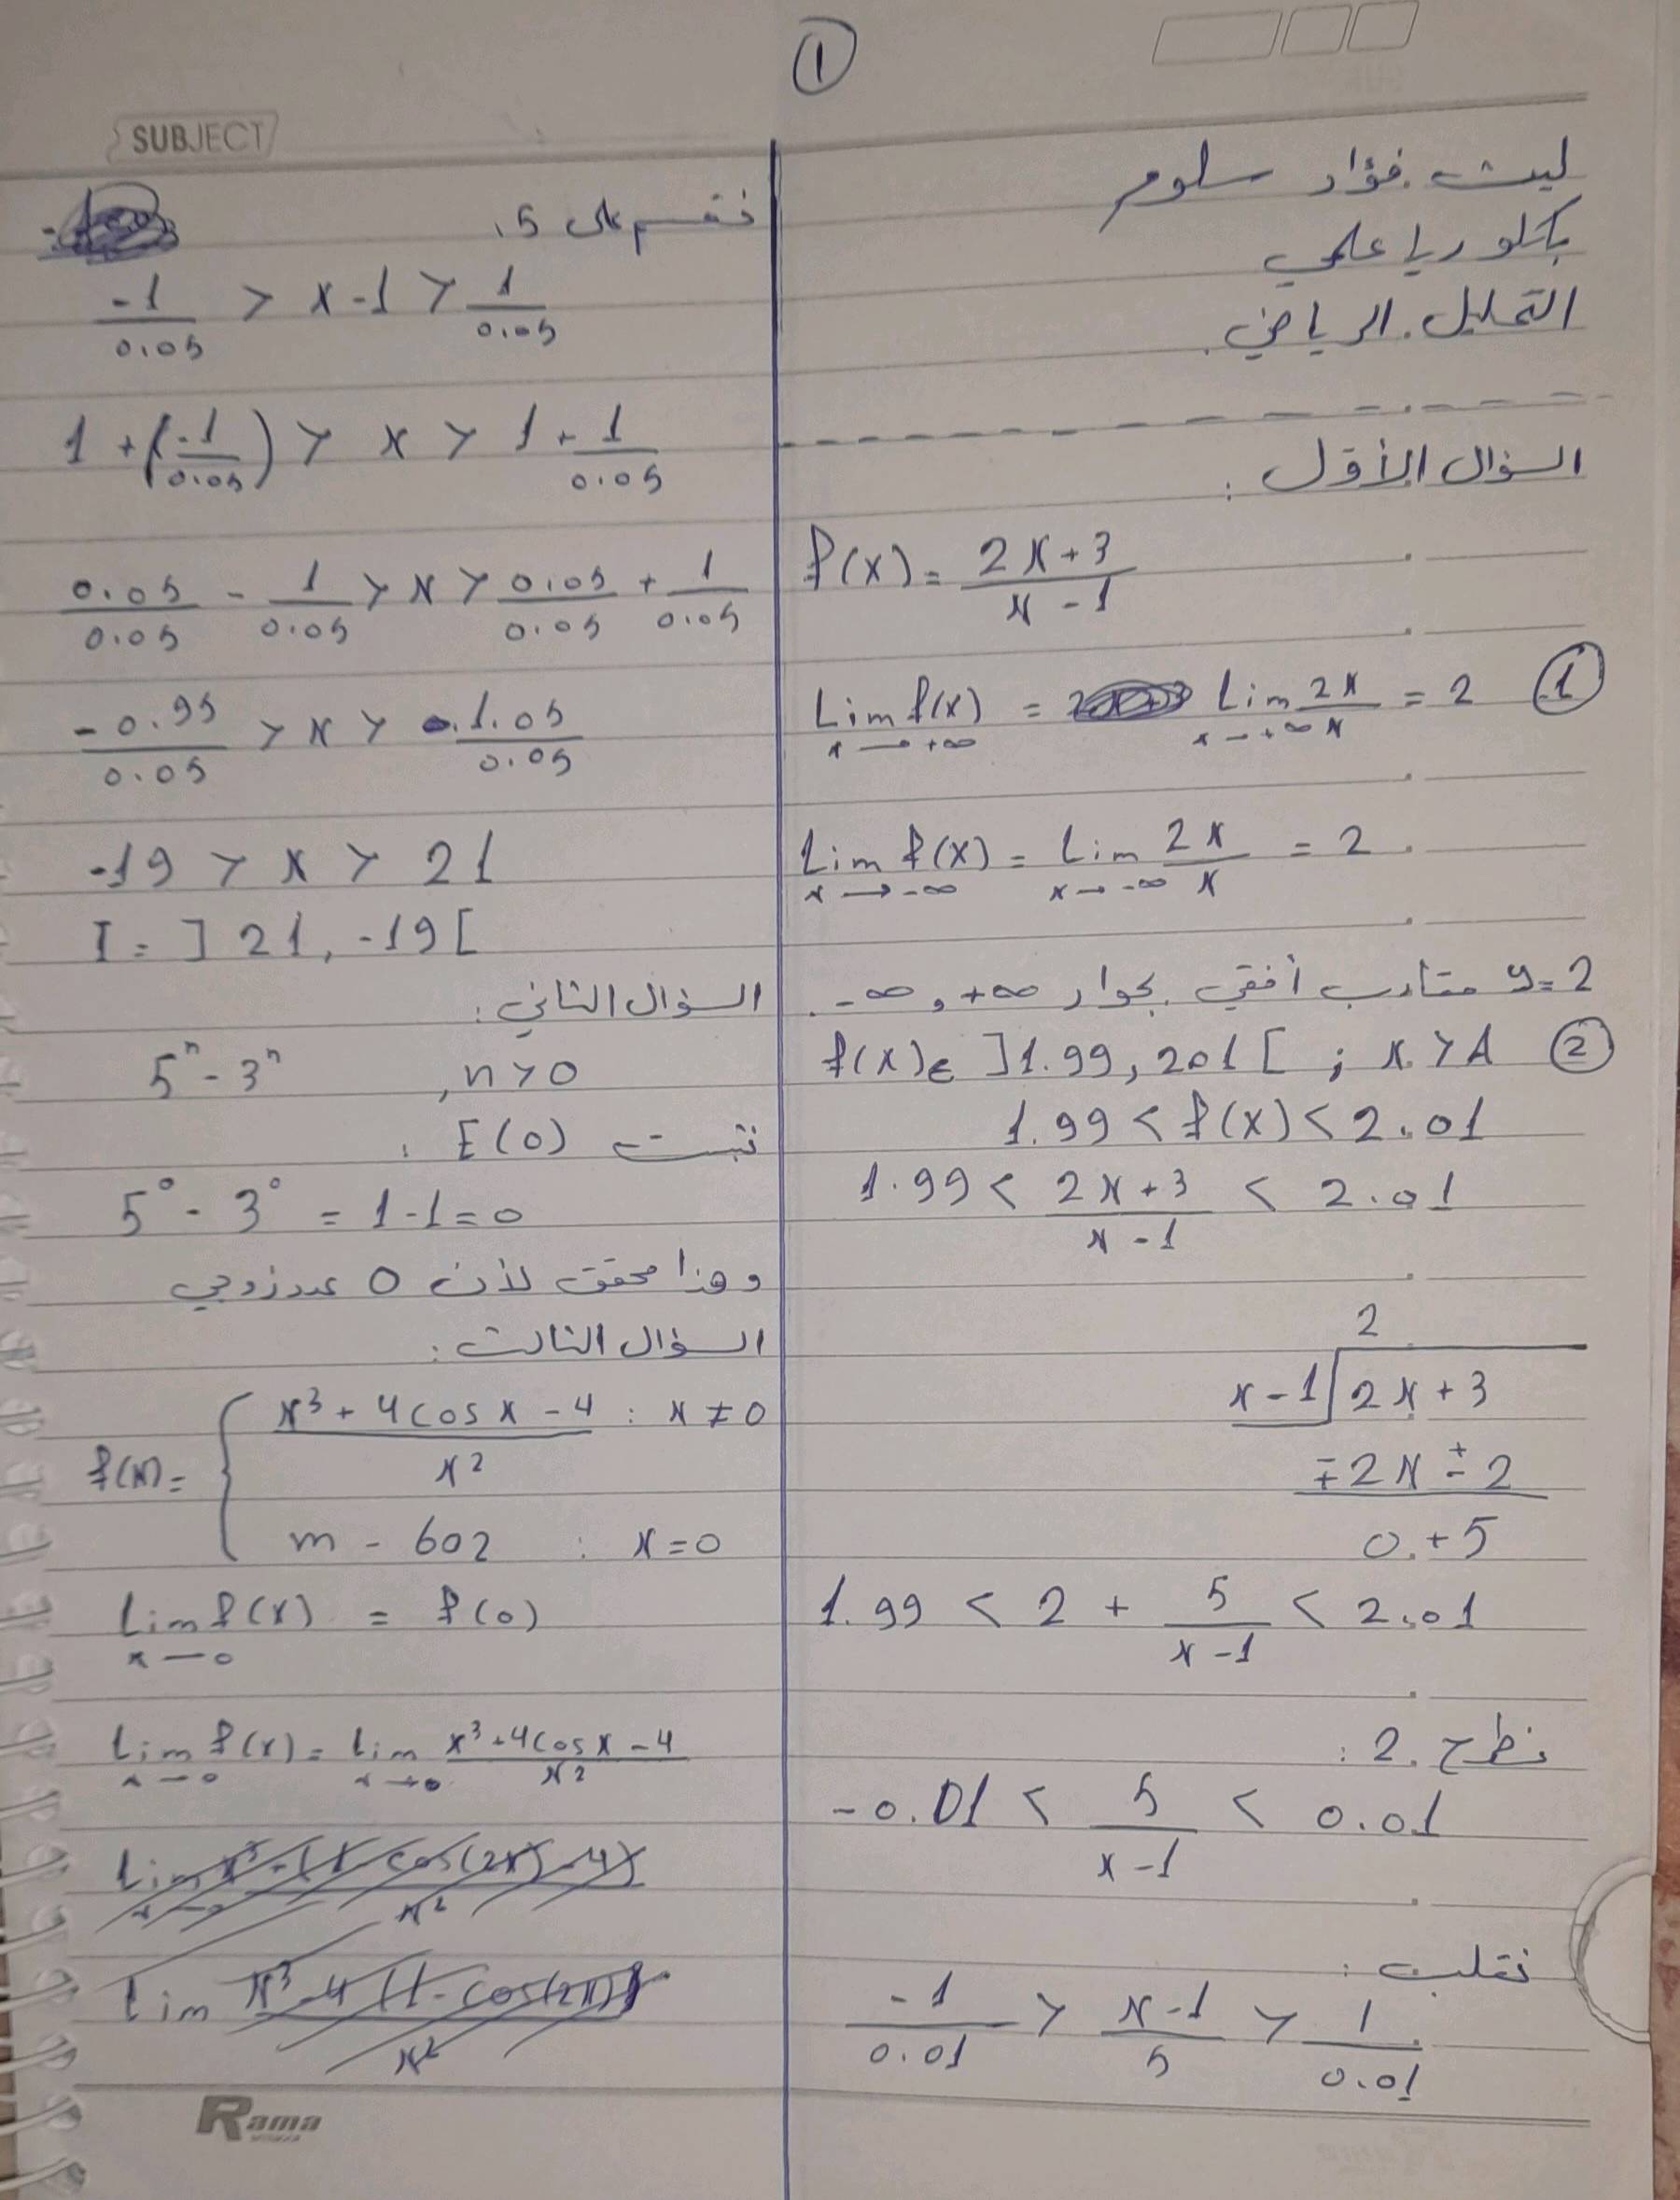 1
SUBJECT
ليث فؤاد سلوم
بكلوريا علمي
التحليل الرياضي.
السؤال الأوّل :
f(x) = (2x+3)/(x-1)
① Lim x→+∞ f(x) = Lim x→+∞ 2x/x = 2
Lim x→-∞ f(x) = Lim x→-∞ 2x/x = 2
y=2 مقارب أفقي بجوار +∞ و -∞.
② f(x)∈ ]1.99, 201[ ; x > A
1.99 < f(x) < 2.01
1.99 < (2x+3)/(x-1) < 2.01
2
x-1 2x+3
∓2x ± 2
0+5
1.99 < 2 + 5/(x-1) < 2.01
نطرح 2 :
-0.01 < 5/(x-1) < 0.01
نقلب :
-1/0.01 > (x-1)/5 > 1/0.01
نقسم على 5.
-1/0.05 > x-1 > 1/0.05
1+(-1/0.05) > x > 1+1/0.05
0.05/0.05 - 1/0.05 > x > 0.05/0.05 + 1/0.05
-0.95/0.05 > x > 1.05/0.05
-19 > x > 21
I = ]21, -19[
السؤال الثاني :
5ⁿ - 3ⁿ , n > 0
نثبت E(0) :
5⁰ - 3⁰ = 1-1 = 0
وهذا محقق لأن 0 عدد زوجي
السؤال الثالث :
f(x) = { (x³+4cosx-4)/x² : x≠0
m - 602 : x=0
Lim x→0 f(x) = f(0)
Lim x→0 f(x) = Lim x→0 (x³+4cosx-4)/x²
Rama